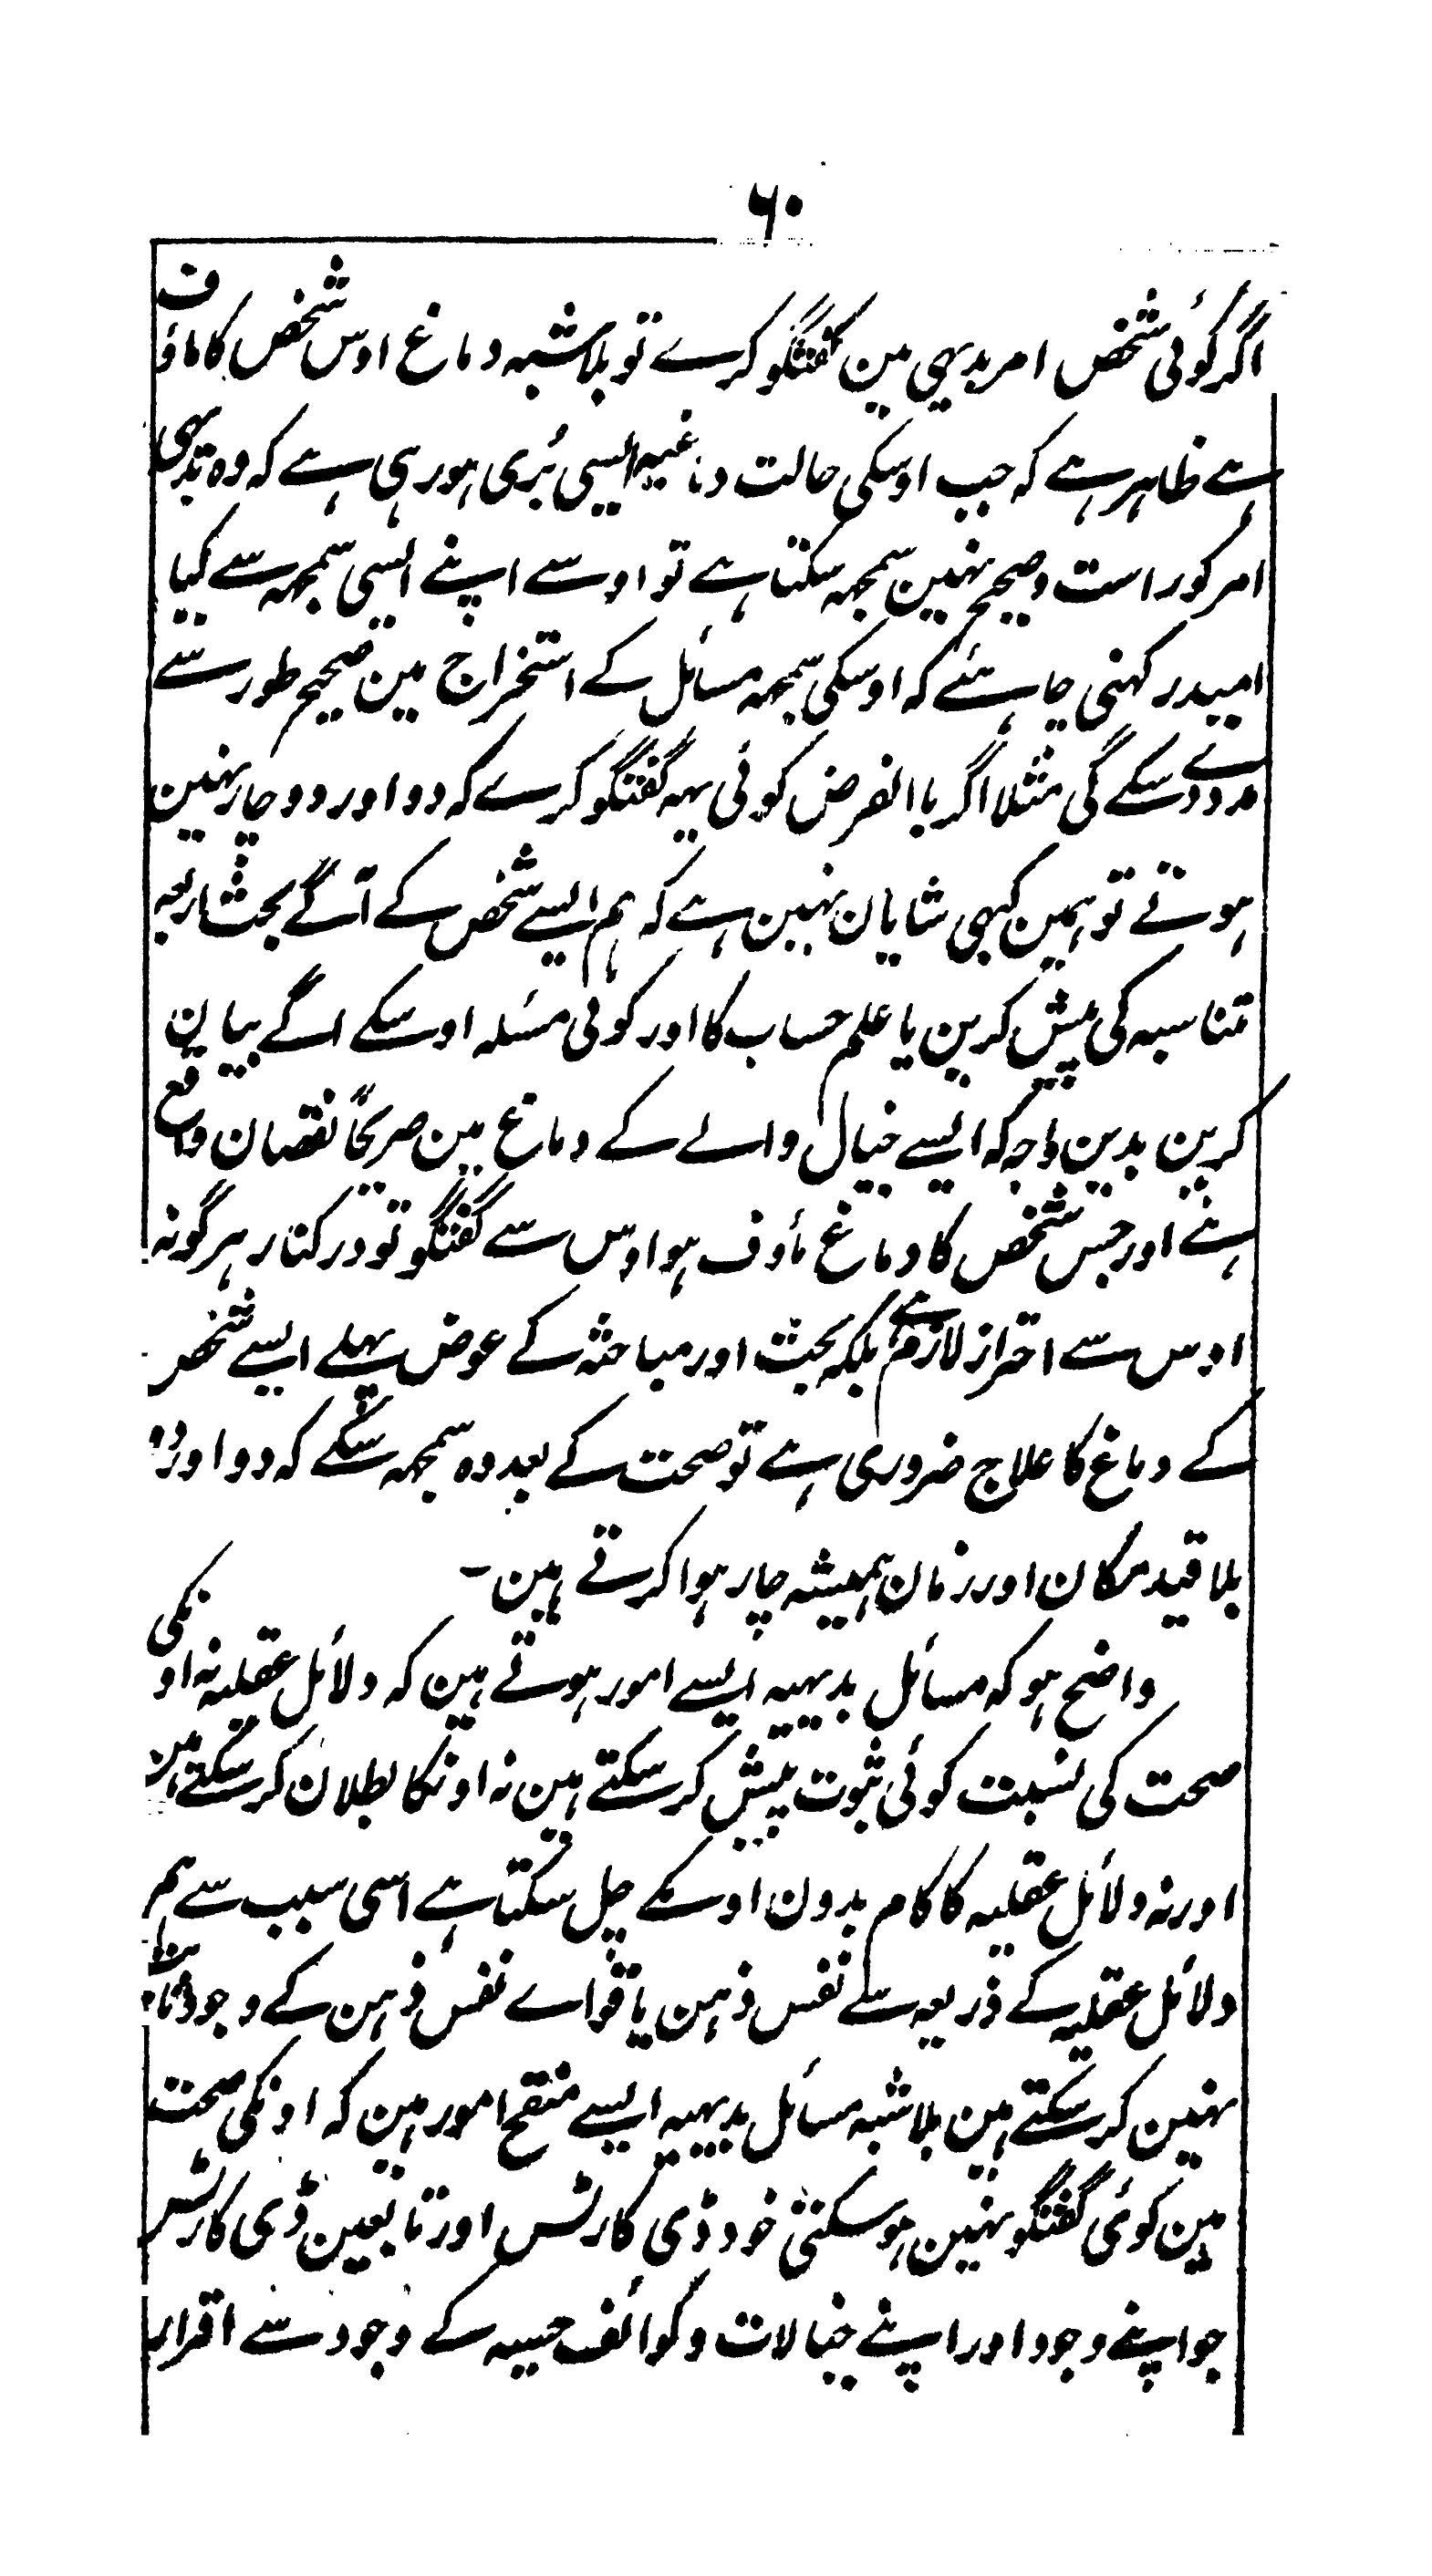 ۶۰
اگر کوئی شخص امر بدیہی مین گفتگو کرے تو بلا شبہ دماغ اوس شخص کا ماؤف
ہے ظاہر ہے کہ جب اوسکی حالت دماغیہ ایسی بُری ہو رہی ہے کہ وہ بدیہی
امر کو راست و صحیح نہین سمجہہ سکتا ہے تو اوسے اپنے ایسی سمجہہ سے کیا
امید رکہنی چاہئے کہ اوسکی سمجہہ مسائل کے استخراج مین صحیح طور سے
مدد دے سکے گی مثلا اگر با الفرض کوئی یہہ گفتگو کرے کہ دو اور دو چار نہین
ہوتے تو ہمین کبہی شایان نہین ہے کہ ہم ایسے شخص کے آگے بحث اربعہ
تناسبہ کی پیش کرین یا علم حساب کا اور کوئی مسئلہ اوسکے اگے بیان
کرین بدین وجہ کہ ایسے خیال والے کے دماغ مین صریحاً نقصان واقع
ہے اور جس شخص کا دماغ مأوف ہو اوس سے گفتگو تو درکنار ہر گونہ
اوس سے احتراز لازم ہے بلکہ بحث اور مباحثہ کے عوض پہلے ایسے شخص
کے دماغ کا علاج ضروری ہے تو صحت کے بعد وہ سمجہہ سکے کہ دو اور دو
بلا قید مکان اور زمان ہمیشہ چار ہوا کرتے ہین -
واضح ہو کہ مسائل بدیہیہ ایسے امور ہوتے ہین کہ دلائل عقلیہ نہ اونکی
صحت کی نسبت کوئی ثبوت پیش کر سکتے ہین نہ اونکا بطلان کر سکتے ہین
اور نہ دلائل عقلیہ کا کام بدون اوسکے چل سکتا ہے اسی سبب سے ہم
دلائل عقلیہ کے ذریعہ سے نفس ذہن یا قواے نفس ذہن کے وجود کا
نہین کر سکتے ہین بلا شبہ مسائل بدیہیہ ایسے منقح امور ہین کہ اونکی صحت
مین کوئی گفتگو نہین ہو سکتی خود ڈی کارٹس اور تابعین ڈی کارٹس
جو اپنے وجود اور اپنے خیالات و کوائف حسیہ کے وجود سے اقرار